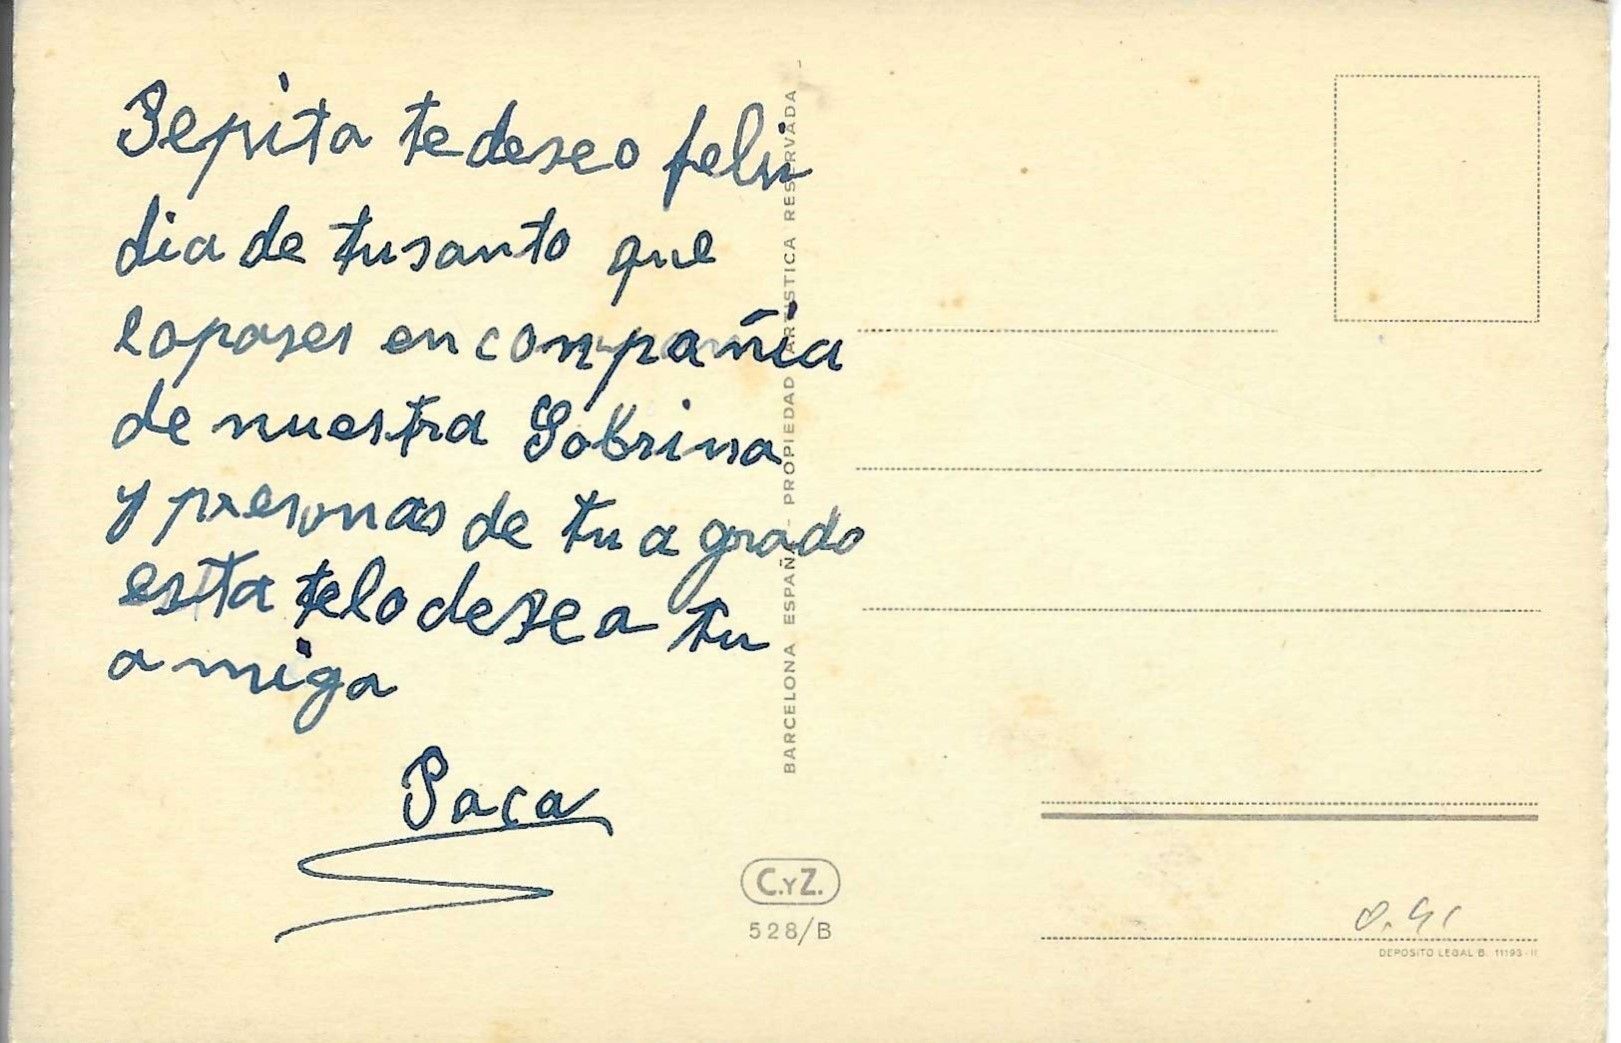 Pepita te deseo feliz
dia de tu santo que
lo pases en compañia
de nuestra Sobrina
y presonas de tu agrado
esta te lo desea tu
amiga
Paca
BARCELONA ESPAÑA - PROPIEDAD ARTISTICA RESERVADA -
C.YZ.
528/B
DEPOSITO LEGAL B. 11193-II